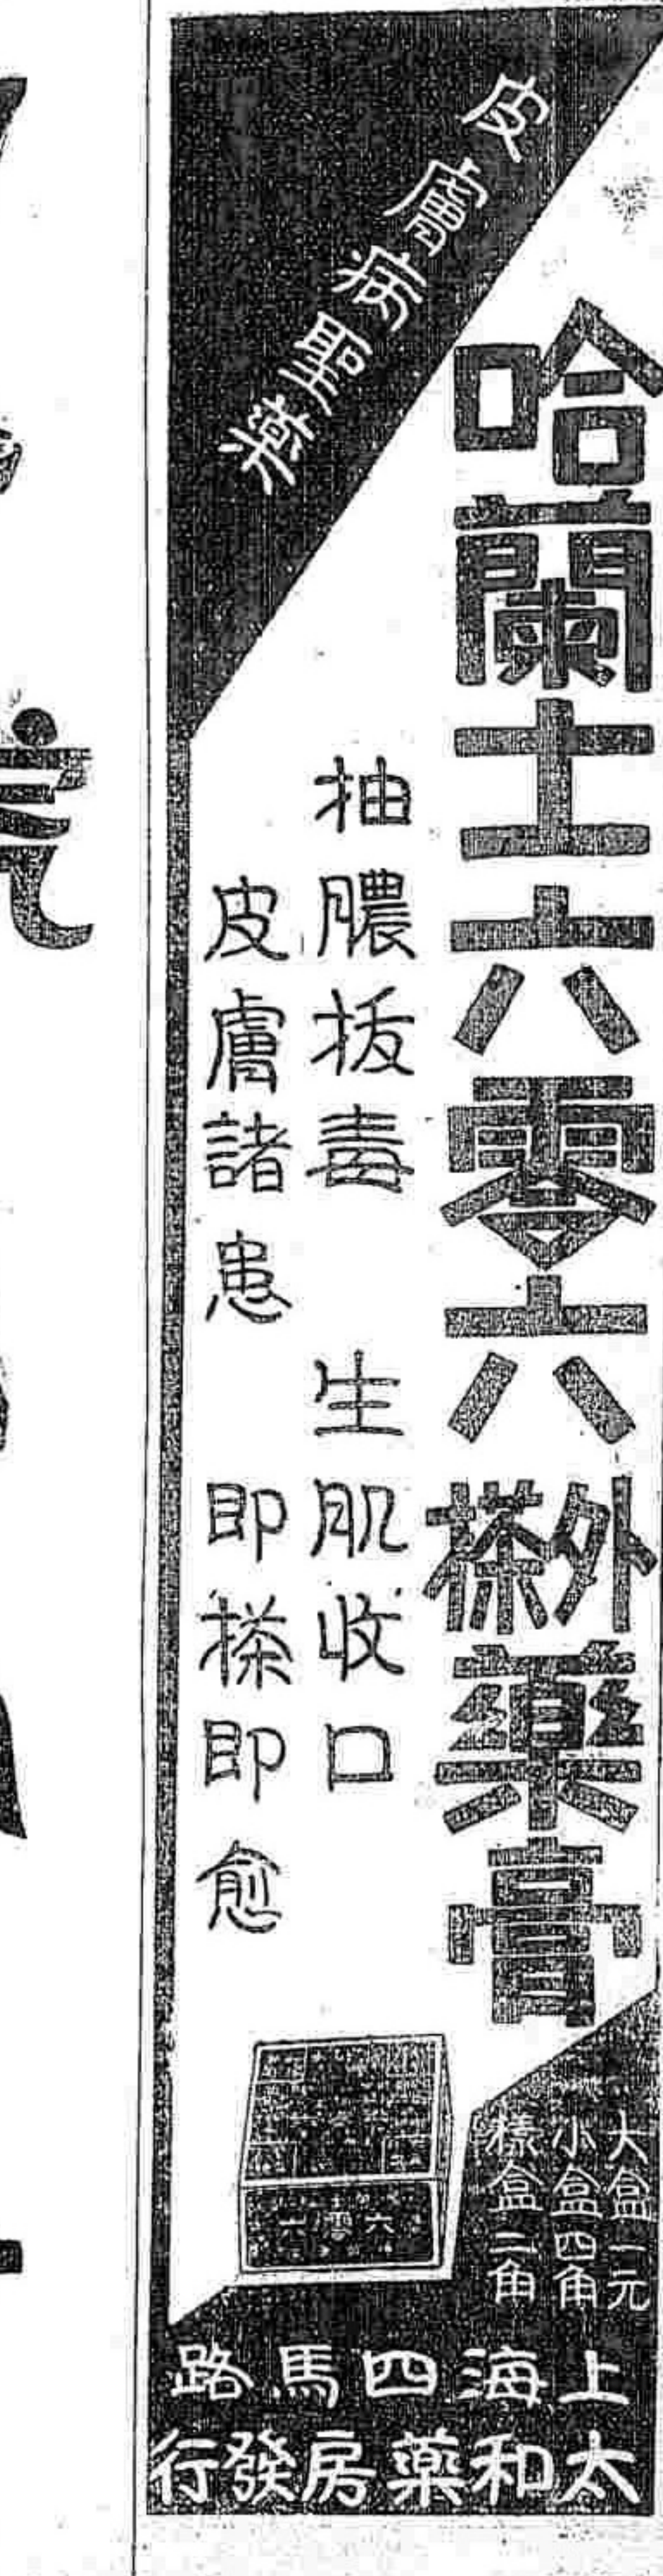 皮膚病聖藥
哈蘭士六零六外搽藥膏
抽膿拔毒 生肌收口
皮膚諸患 即搽即愈
六零六
大盒一元
小盒四角
樣盒二角
上海四馬路
太和藥房發行